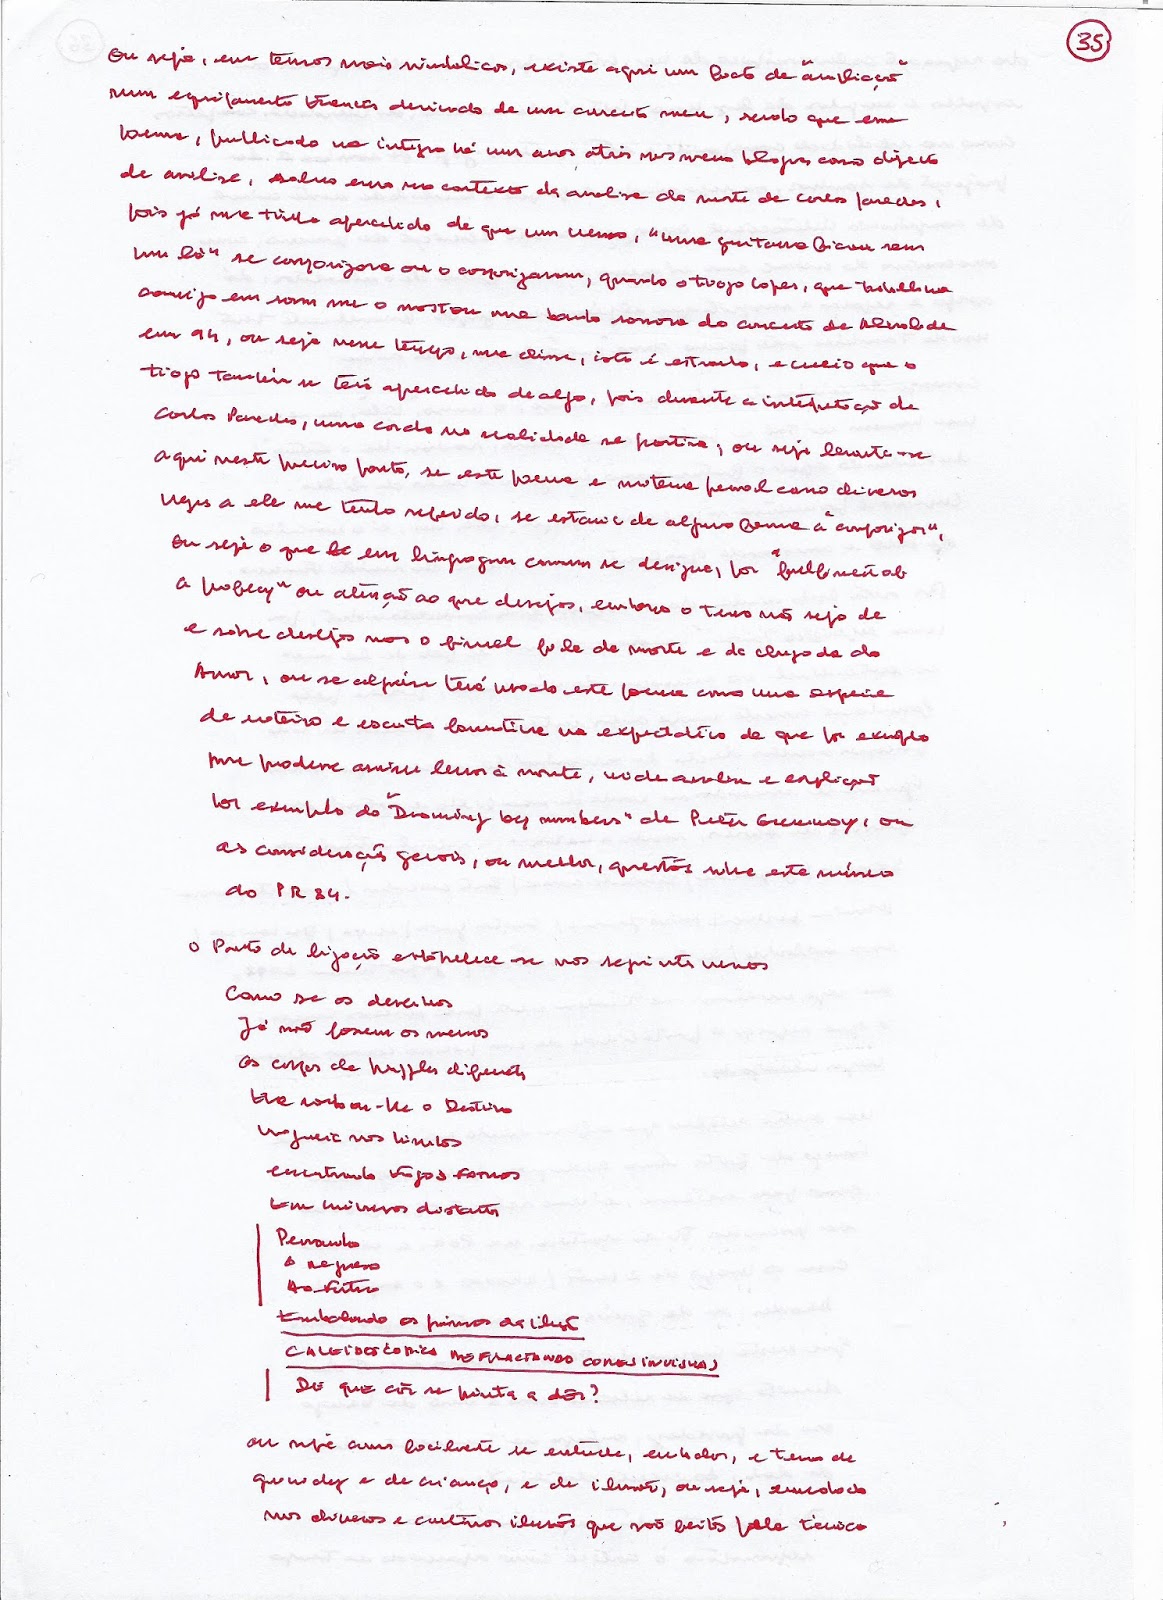 35
Ou seja, em termos mais simbolicos, existe aqui um facto de "ampliaçaõ"
num equipamento Francês derivado de um circuito meu, sendo que esse
poema, publicado na integra há uns anos atrás nos meus blogues como objecto
de análise, salvo erro no contexto da analise da morte de carlos paredes,
pois já me tinha apercebido de que um verso, "uma guitarra ficou sem
um lá" se corporizara ou o corporizaram, quando o tiago lopes, que trabalhava
comigo em som me o mostou na banda sonora do concerto de Alvalade
em 94, ou seja nesse tempo, me disse, isto é estranho, e creio que o
tiago também se terá apercebido de algo, pois durante a interpretação de
Carlos Paredes, uma corda na realidade se partira, ou seja levanta-se
aqui neste preciso ponto, se este poema e matéria penal como diversas
vezes a ele me tenho referido, se estaria de alguma forma a "corporizar",
ou seja o que em linguagem comum se designa, por "fulfilment of
a profecy" ou atenção ao que desejas, embora o tema não seja de
e sobre desejos mas o final fale de morte e da chegada do
Amor, ou se alguém terá usado este poema como uma especie
de roteiro e escrita formativa na expectativa de que por exemplo
me pudesse assim levar à morte, vide analise e explicação
por exemplo do "Drowning by numbers" de Peter Greenaway, ou
as considerações gerais, ou melhor, questões sobre este número
do PR 84.
o Ponto de ligação estabelece-se nos seguintes versos
Como se os desenhos
Já não fossem os mesmos
os corpos de puzzles diferentes
encontrando vagos
Em números distantes
Pensando
O regresso
Ao Futuro
Embalando os primos da ilusão
CALEIDESCÓPICA REFRACTANDO CORES INVISIVEIS
DE que côr se pinta a dôr?
ou seja como facilmente se entende, embalar, é termo de
e de criança, e de ilusão, ou seja,
nos diversos e contínuos ilusões que são feitos pela técnica